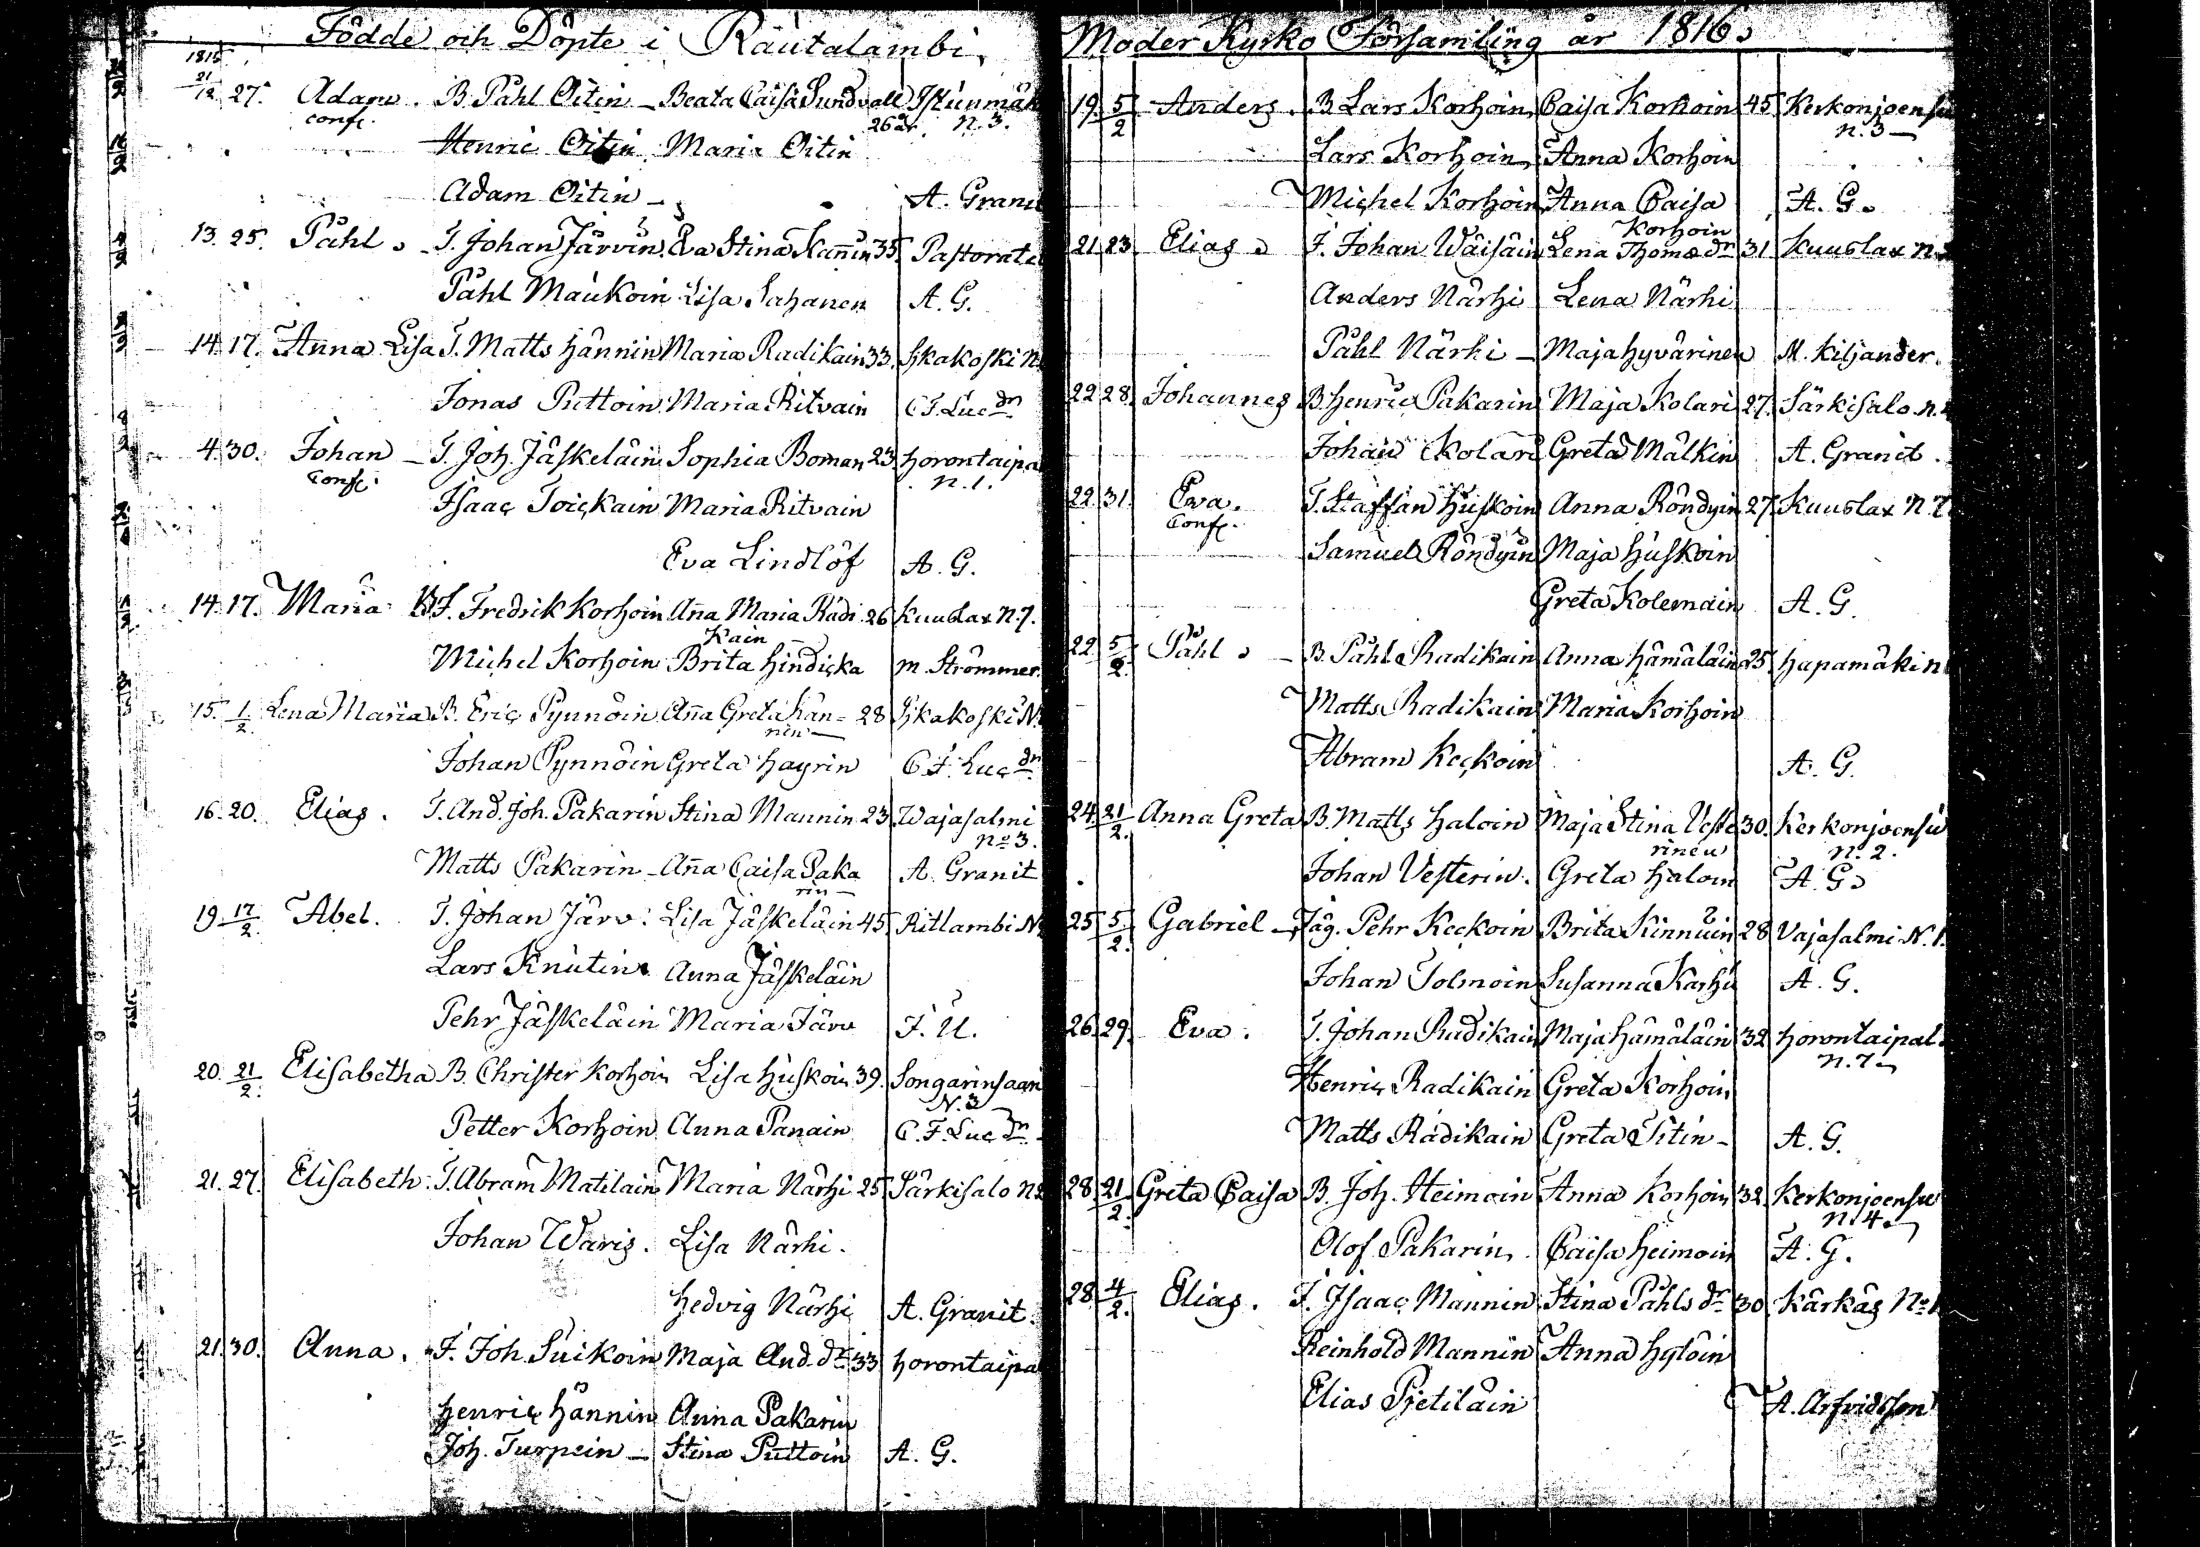 Födde och Döpte i Räutalambi,
1815
21/12 27. Adam. B. Påhl Oitin - Beata Caisa Sundvall
confr. 26 år. n. 3.
Henric Oitin Maria Oitin
Adam Oitin - A. Granit
13. 25. Påhl. T. Johan Järvin. Eva Stina Kañin 35. Pastorate
Påhl Maukoin Lisa Sahanen A. G.
14 17. Anna Lisa T. Matts Hännin Maria Radikain 33. Iskakoski N.
Jonas Puttoin Maria Ritvain C. F. Luc dn
4. 30. Johan - T. Joh. Jäskeläin Sophia Boman 23. Horontaipa
Confr. n. 1.
Isaac Toickain Maria Ritvain
Eva Lindlöf A. G.
14. 17. Maria B. F. Fredrik Korhoin Aña Maria Radi 26 Kuuslax N. 7.
kain
Michel Korhoin Brita Hindicka M. Strömmer.
15. 1/2. Lena Maria B. Eric Pynnöin Aña Greta Hän= 28 Iskakoski N.
nin
Johan Pynnöin Greta Hayrin C. F. Luc dn
16. 20. Elias. T. And. Joh. Pakarin Stina Mannin 23. Wajasalmi
No 3.
Matts Pakarin - Aña Caisa Paka A. Granit
rin
19 17/2. Abel. T. Johan Järv. Lisa Jäskeläin 45. Ritlambi N.
Lars Knutin. Anna Jäskeläin
Pehr Jäskeläin Maria Järv F. U.
20. 21/2. Elisabetha B. Christer Korhoin Lisa Huskoin 39. Songarinsaan
N. 3
Petter Korhoin Anna Panain C. F. Luc dn
21. 27. Elisabeth. T. Abram Matilain Maria Närhi 25 Särkisalo N.
Johan Waris. Lisa Närhi.
Hedvig Närhi A. Granit.
21. 30. Anna. F. Joh. Suikoin Maja And. dr 33 Horontaipa
Henric Hännin Anna Pakarin
Joh. Turpein - Stina Puttoin A. G.
Moder Kyrko Församling år 1816.
19. 5/2 Anders. B. Lars Korhoin Caisa Korhoin 45 Kerkonjoensu
n. 3
Lars Korhoin Anna Korhoin
Michel Korhoin Anna Caisa A. G.
Korhoin
21. 23. Elias. F. Johan Wäisäin Lena Thomæ dr 31 Kuuslax N.
Anders Närhi Lena Närhi
Påhl Närhi - Maja Hyvärinen M. Kiljander.
22 28. Johannes B. Henric Pakarin Maja Kolari 27. Särkisalo n.
Johan Kolari Greta Mälkin A. Granit.
22. 31. Eva. T. Staffan Huskoin Anna Röndyin 27. Kuuslax N. 7.
Confr.
Samuel Röndyin Maja Huskoin
Greta Kolemain A. G.
22. 5/2. Påhl. - B. Påhl Radikain Anna Hämäläin 25. Hapamäki n.
Matts Radikain Maria Korhoin
Abram Keckoin A. G.
24. 21/2. Anna Greta B. Matts Haloin Maja Stina Veste 30. Kerkonjoensu
rinen n. 2.
Johan Vesterin. Greta Haloin A. G.
25 5/2. Gabriel - Jäg. Pehr Keckoin Brita Kinnuin 28 Vajasalmi N. 1.
Johan Tolmoin Susanna Karhu A. G.
26. 29. Eva. T. Johan Radikain Maja Hämäläin 32 Horontaipal.
n. 7
Henric Radikain Greta Korhoin
Matts Radikain Greta Titin - A. G.
28 21/2. Greta Caisa B. Joh. Heimoin Anna Korhoin 32. Kerkonjoensu
n. 4
Olof Pakarin. Caisa Heimoin A. G.
28. 4/2. Elias. F. Isaac Mannin Stina Påhls dr 30. Kärkäs No 1.
Reinhold Mannin Anna Hylöin
Elias Pjetiläin A. Arfvidsson